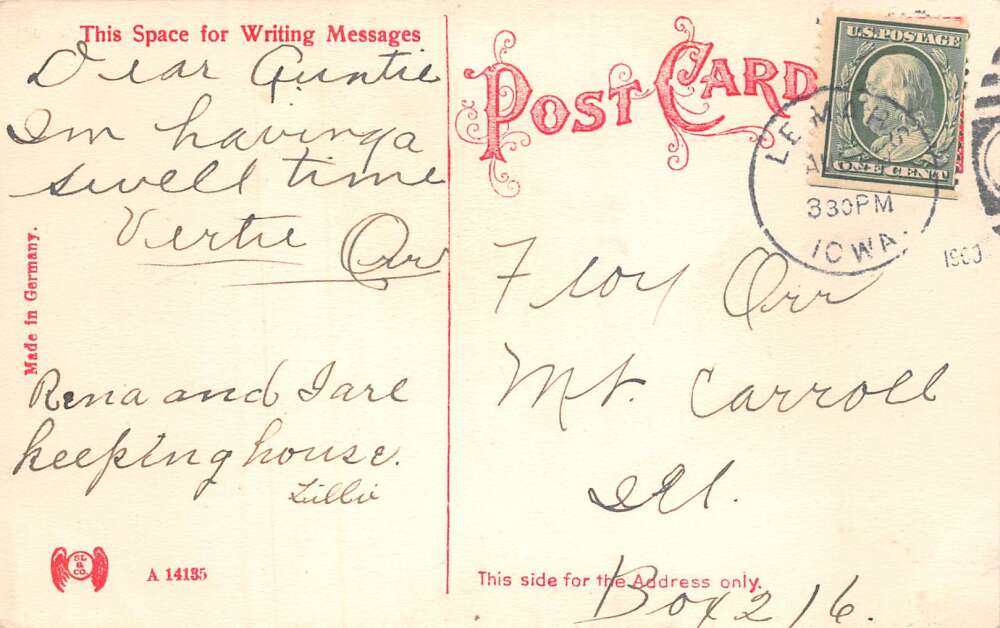 This Space for Writing Messages
Dear Auntie
Im having a
swell time
Vertie Orr
Rena and I are
keeping house.
Lillie
Made in Germany.
SL & CO.
A 14135
POST CARD
U.S. POSTAGE
ONE CENT
LE MARS
330PM
IOWA
Floy Orr
Mt. Carroll
Ill.
This side for the Address only.
Box 216.